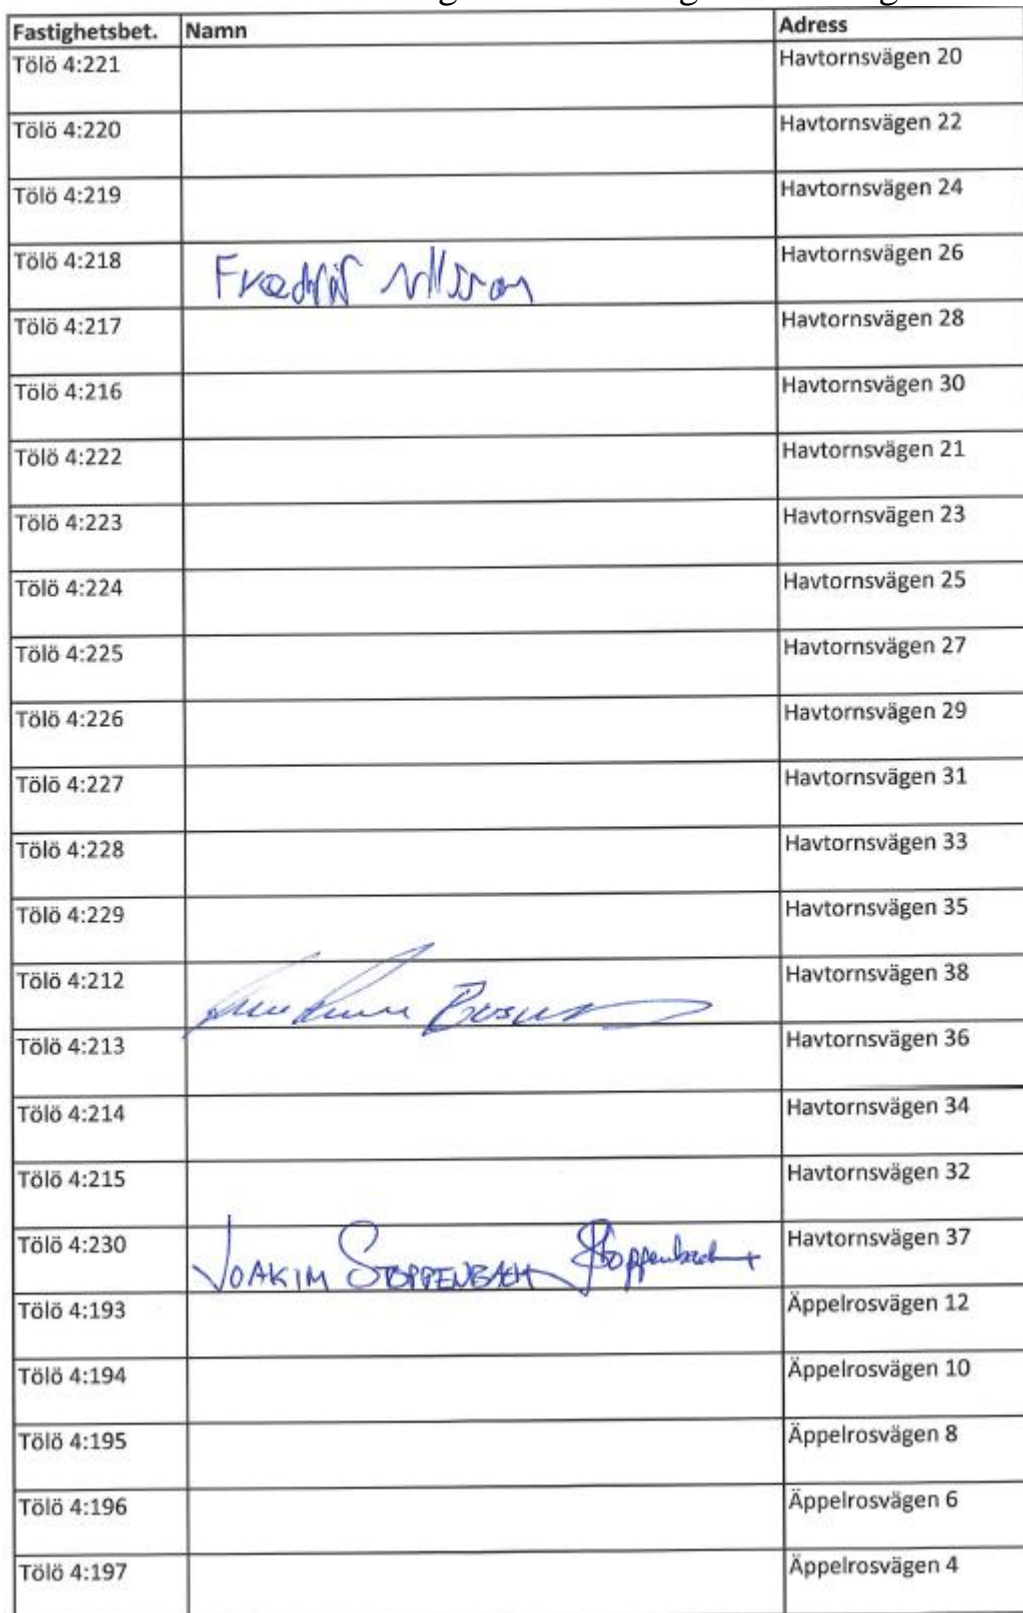 Fastighetsbet. Namn Adress
Tölö 4:221 Havtornsvägen 20
Tölö 4:220 Havtornsvägen 22
Tölö 4:219 Havtornsvägen 24
Tölö 4:218 Fredrik Nilsson Havtornsvägen 26
Tölö 4:217 Havtornsvägen 28
Tölö 4:216 Havtornsvägen 30
Tölö 4:222 Havtornsvägen 21
Tölö 4:223 Havtornsvägen 23
Tölö 4:224 Havtornsvägen 25
Tölö 4:225 Havtornsvägen 27
Tölö 4:226 Havtornsvägen 29
Tölö 4:227 Havtornsvägen 31
Tölö 4:228 Havtornsvägen 33
Tölö 4:229 Havtornsvägen 35
Tölö 4:212 Havtornsvägen 38
Tölö 4:213 Havtornsvägen 36
Tölö 4:214 Havtornsvägen 34
Tölö 4:215 Havtornsvägen 32
Tölö 4:230 JOAKIM STOPPENBACH Stoppenbach Havtornsvägen 37
Tölö 4:193 Äppelrosvägen 12
Tölö 4:194 Äppelrosvägen 10
Tölö 4:195 Äppelrosvägen 8
Tölö 4:196 Äppelrosvägen 6
Tölö 4:197 Äppelrosvägen 4